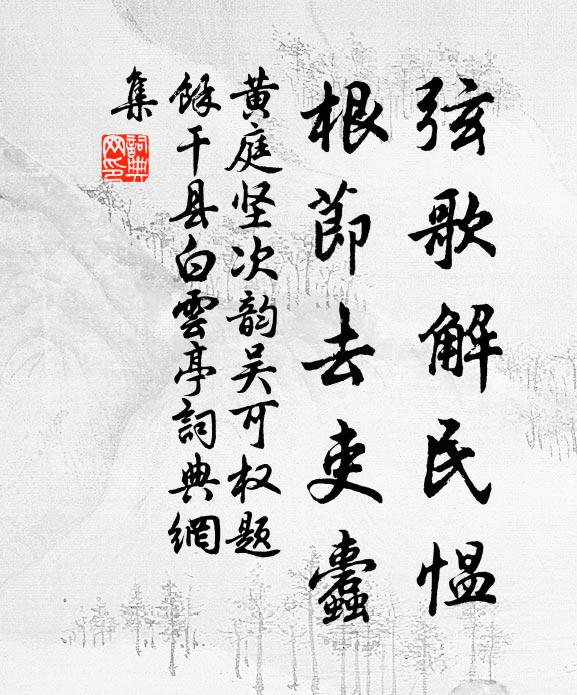 弦歌解民愠
根節去吏蠹
黄庭坚次韵吴可权题
餘干县白雲亭詞典網
集
詞典
网印